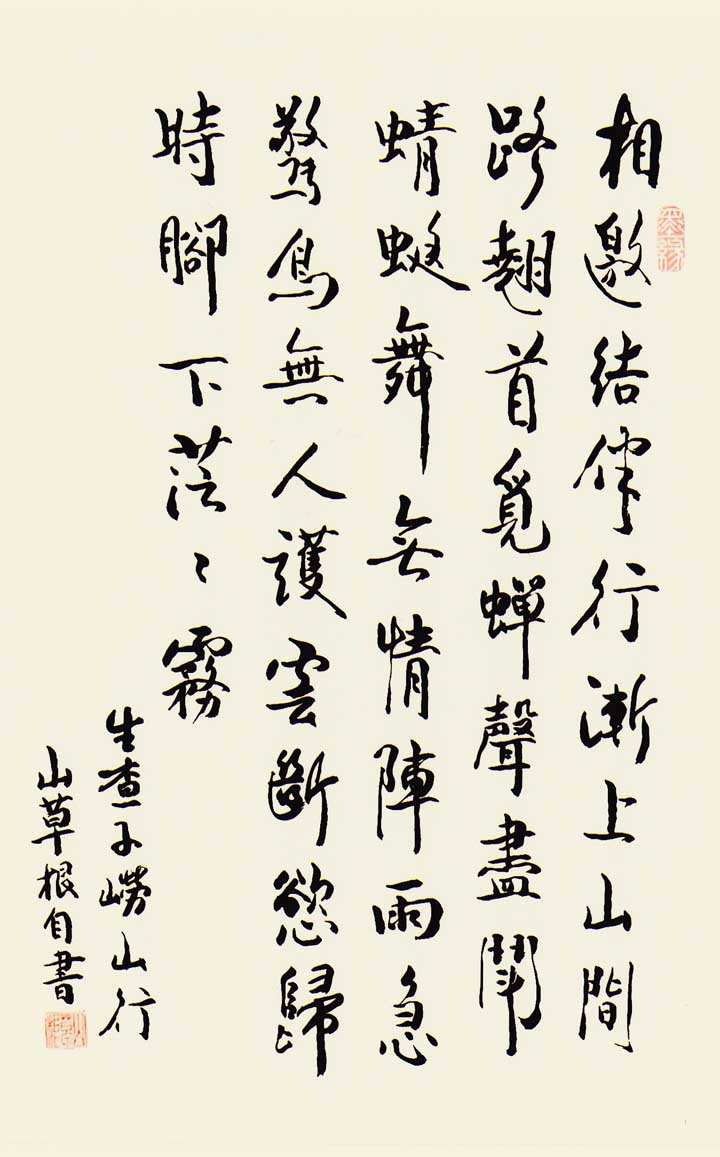 相邀結伴行漸上山間
路翹首覓蟬聲盡鬥
蜻蜓舞無情陣雨急
驚鳥無人護雲斷慾歸
時腳下茫〻霧
生查子嶗山行
山草根自書